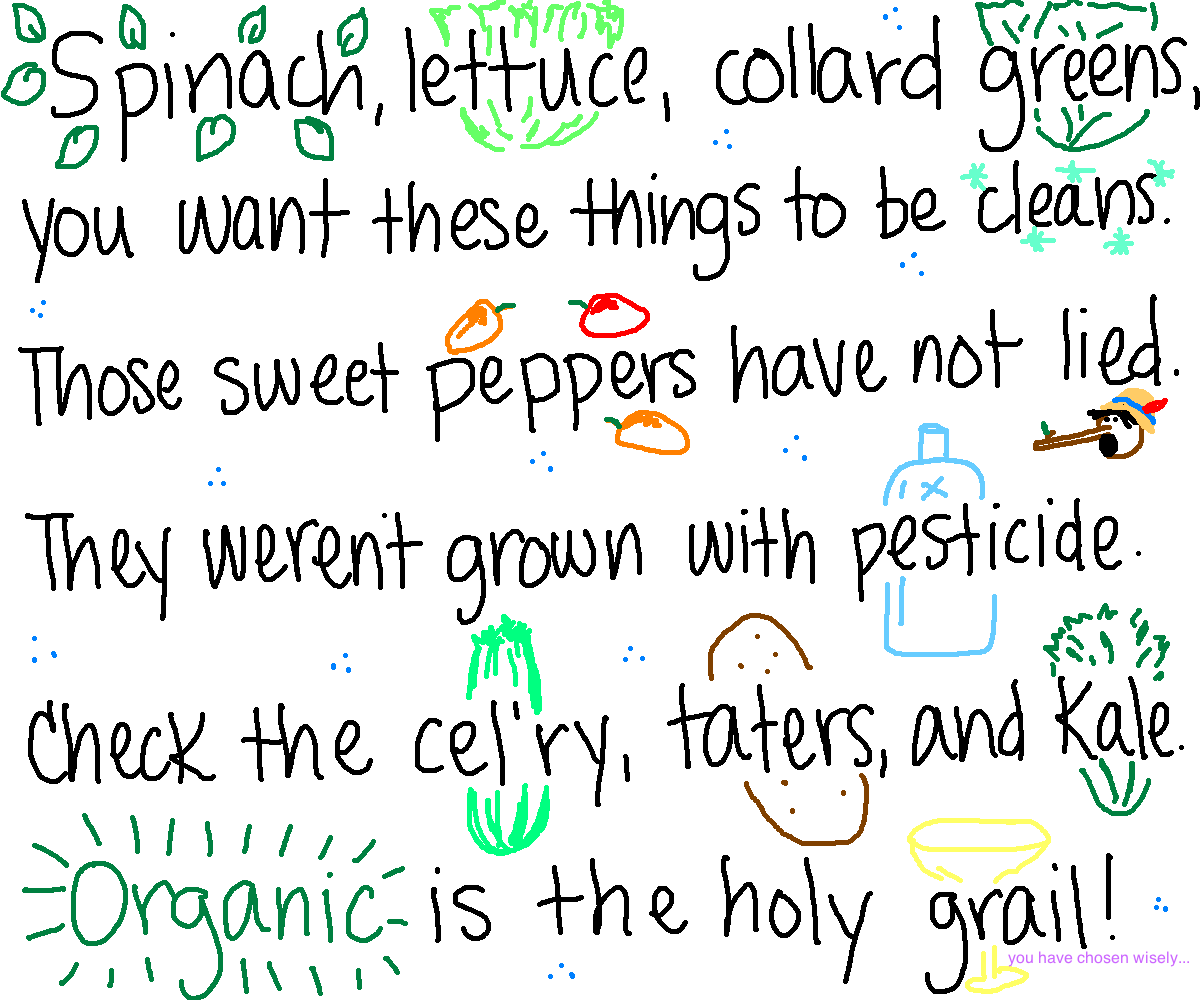 Spinach, lettuce, collard greens,
you want these things to be cleans.
Those sweet peppers have not lied.
They werent grown with pesticide.
Check the cel'ry, taters, and kale.
Organic is the holy grail!
you have chosen wisely...